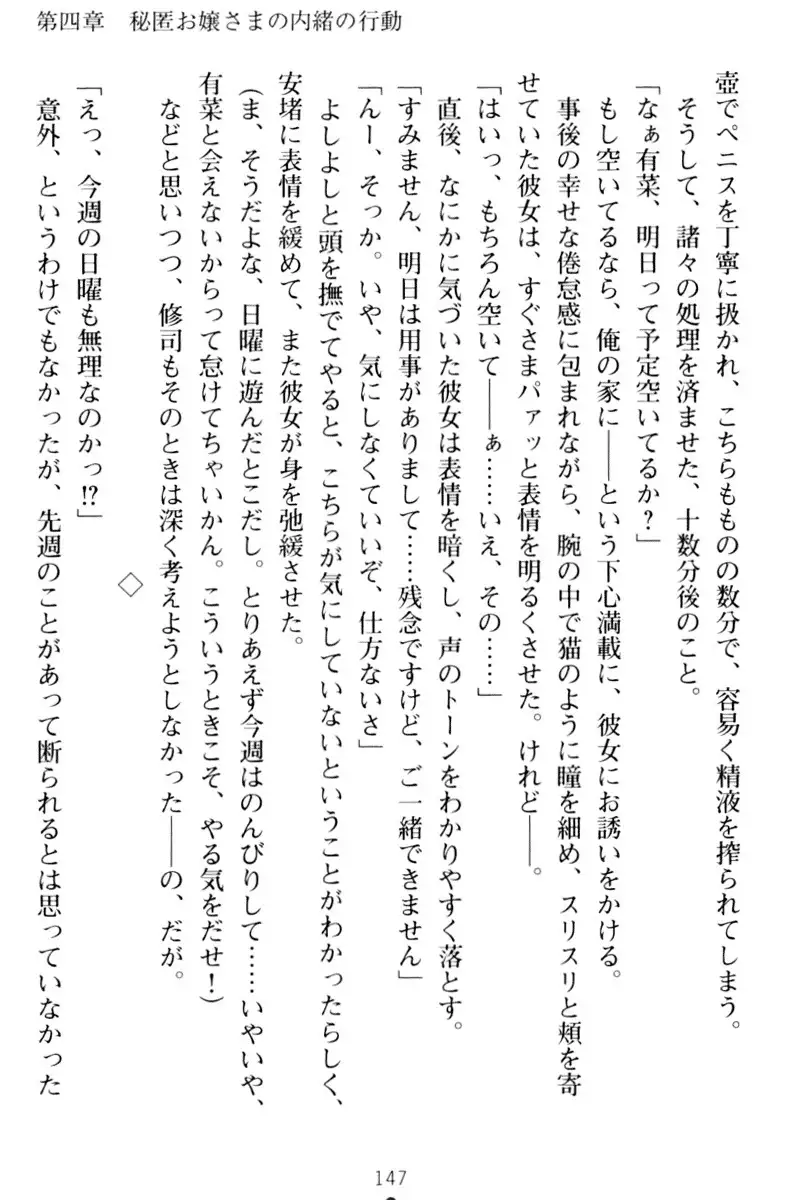 第四章　秘匿お嬢さまの内緒の行動
壺でペニスを丁寧に扱かれ、こちらもものの数分で、容易く精液を搾られてしまう。
そうして、諸々の処理を済ませた、十数分後のこと。
「なぁ有菜、明日って予定空いてるか？」
もし空いてるなら、俺の家に――という下心満載に、彼女にお誘いをかける。
事後の幸せな倦怠感に包まれながら、腕の中で猫のように瞳を細め、スリスリと頬を寄
せていた彼女は、すぐさまパァッと表情を明るくさせた。けれど――。
「はいっ、もちろん空いて――ぁ……いえ、その……」
直後、なにかに気づいた彼女は表情を暗くし、声のトーンをわかりやすく落とす。
「すみません、明日は用事がありまして……残念ですけど、ご一緒できません」
「んー、そっか。いや、気にしなくていいぞ、仕方ないさ」
よしよしと頭を撫でてやると、こちらが気にしていないということがわかったらしく、
安堵に表情を緩めて、また彼女が身を弛緩させた。
（ま、そうだよな、日曜に遊んだとこだし。とりあえず今週はのんびりして……いやいや、
有菜と会えないからって怠けてちゃいかん。こういうときこそ、やる気をだせ！）
などと思いつつ、修司もそのときは深く考えようとしなかった――の、だが。
◇
「えっ、今週の日曜も無理なのかっ!?」
意外、というわけでもなかったが、先週のことがあって断られるとは思っていなかった
147